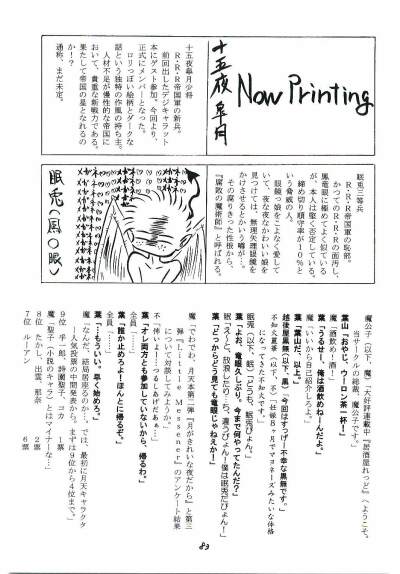 十五夜皐月
Now Printing
十五夜皐月少将
R・R・R帝国軍の新兵。
前回出したデジキャラット
本にゲスト参加。今回より、
正式にメンバーとなった。
ロリっぽい絵柄とダークな
話という独特の作風の持ち主。
人材不足が慢性的な帝国に
おいて、貴重な新戦力である。
果たして帝国の星となれるの
か！？
通称、まだ未定。
眠兎三等兵
R・R・R帝国軍の恥部。
かつてのR・R・Rの面汚し、
風竜眼に極めてよく似ている
が、本人は堅く否定している。
締め切り順守率が10％と
いう脅威の人。
眼鏡っ娘をこよなく愛して
いて、夜な夜なかわいい娘を
見つけては、無理矢理眼鏡を
かけさせるとかいう噂が…。
その腐りきった性根から、
『腐敗の魔術師』と呼ばれる。
眠兎(風〇眼)
魔公子(以下、魔)「大好評連載中『居酒屋れっど』へようこそ。
当サークルの総裁、魔公子です。」
葉山「おやじ、ウーロン茶一杯！」
魔「酒飲めぃ！酒！」
葉「うるせー、俺は酒飲めねーんだよ」
魔「いいから自己紹介しろよ。」
葉「葉山だ。以上。」
越後屋黒無(以下、黒)「今回はすっげー不幸な黒無です。」
になってきた不知火です。」
眠兎(以下、眠)「どうも、眠兎ぴょん。」
葉「よお、竜眼久しぶり。今まで何やってたんだ？」
眠「えーと、放浪したり…ち、違うぴょん！僕は眠兎だぴょん！」
葉「どっからどう見ても竜眼じゃねえか！」
魔「でわでわ、月天本第二弾『月がきれいな夜だから』と第三
弾『Little Messenger』のアンケート結果
について対談してみようか。」
葉「オレ両方とも参加していないから、帰るわ。」
全員「……」
葉「誰か止めろよ！ほんとに帰るぞ。」
全員「……」
葉「…もういい。早く始めろ。」
魔「なんだ、結局居座るのか…。では、最初に月天キャラクタ
ー人気投票の中間発表から。まずは9位から4位まで。」
魔「聖子(小説のキャラ)とはマイナーな…」
8位　たかし、出雲、那奈　2票
7位　ルーアン　6票
83